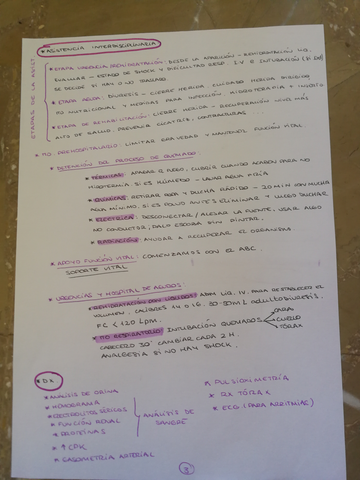 * ASISTENCIA INTERDISCIPLINARIA
ETAPAS DE LA ASIST.
* ETAPA URGENCIA : DESDE LA APARICIÓN - REHIDRATACIÓN LIQ.
EVALUAR - ESTADO DE SHOCK Y DIFICULTAD RESP. I.V E INTUBACIÓN
SE DECIDE SI HAY O NO TRASLADO.
* ETAPA AGUDA: DIURESIS - CIERRE HERIDA. CUIDADO HERIDA DIRIGIDO
TTO NUTRICIONAL Y MEDIDAS PARA INFECCIÓN. HIDROTERAPIA + INJERTO
* ETAPA DE REHABILITACIÓN: CIERRE HERIDA - RECUPERACIÓN
ALTA DE SALUD. PREVENIR CICATRIZ, CONTRACTURAS ...
* TTO PREHOSPITALARIO: LIMITAR GRAVEDAD Y MANTENER FUNCIÓN VITAL.
* DETENCIÓN DEL PROCESO DE QUEMADO:
* TÉRMICAS: APAGAR EL FUEGO, CUBRIR CUANDO ACABEN PARA NO
HIPOTERMIA. SI ES HÚMEDO - LAVAR AGUA FRÍA
* QUÍMICAS: RETIRAR ROPA Y DUCHA RÁPIDO - 20 MIN CON MUCHA
AGUA MÍNIMO. SI ES POLVO ANTES ELIMINAR Y LUEGO DUCHAR.
* ELÉCTRICA: DESCONECTAR / ALEJAR LA FUENTE, USAR ALGO
NO CONDUCTOR, PALO ESCOBA SIN PINTAR.
* RADIACIÓN: AYUDAR A RECUPERAR EL ORGANISMO
* APOYO FUNCIÓN VITAL: COMENZAMOS CON EL ABC.
SOPORTE VITAL
* URGENCIAS Y HOSPITAL DE AGUDOS:
* REHIDRATACIÓN CON LÍQUIDOS: ADM. LIQ. IV. PARA RESTABLECER EL
VOLUMEN. CALIBRES 14 O 16. 30-50ML ADULTO DIURESIS.
FC < 120 LPM.
* TTO RESPIRATORIO: INTUBACIÓN QUEMADOS CARA
CUELLO
TÓRAX
CABECERO 30º CAMBIAR CADA 2H
ANALGESIA SI NO HAY SHOCK.
* DX
* ANÁLISIS DE ORINA
* HEMOGRAMA
* ELECTROLITOS SÉRICOS
* FUNCIÓN RENAL
* PROTEÍNAS
ANÁLISIS DE SANGRE
* ↑ CPK
* GASOMETRÍA ARTERIAL
* PULSIOMETRÍA
* RX TÓRAX
* ECG (PARA ARRITMIAS)
3